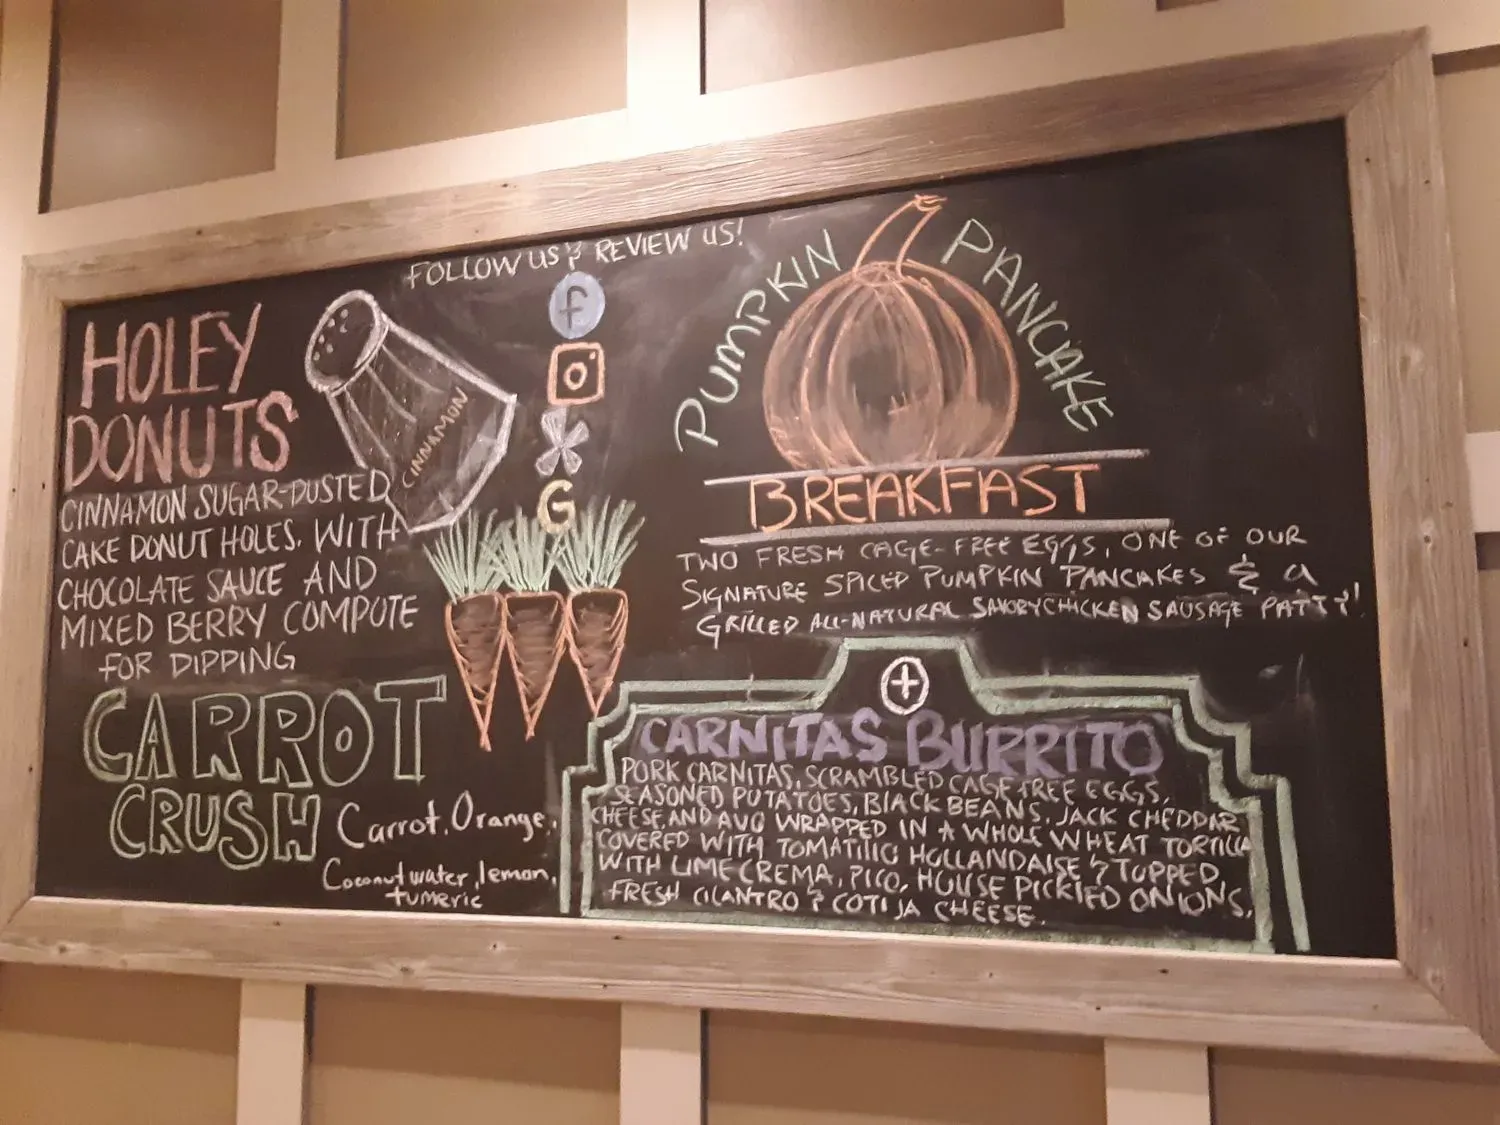 FOLLOW US & REVIEW US!
f
G
HOLEY
DONUTS
CINNAMON
CINNAMON SUGAR-DUSTED
CAKE DONUT HOLES. WITH
CHOCOLATE SAUCE AND
MIXED BERRY COMPOTE
FOR DIPPING
CARROT
CRUSH
Carrot, Orange,
Coconut water, lemon,
tumeric
PUMPKIN PANCAKE
BREAKFAST
TWO FRESH CAGE-FREE EGGS, ONE OF OUR
SIGNATURE SPICED PUMPKIN PANCAKES & a
GRILLED ALL-NATURAL SAVORY CHICKEN SAUSAGE PATTY!
CARNITAS BURRITO
PORK CARNITAS, SCRAMBLED CAGE FREE EGGS,
SEASONED POTATOES, BLACK BEANS, JACK CHEDDAR
CHEESE, AND AVO WRAPPED IN A WHOLE WHEAT TORTILLA
COVERED WITH TOMATILLO HOLLANDAISE & TOPPED
WITH LIME CREMA, PICO, HOUSE PICKLED ONIONS,
FRESH CILANTRO & COTIJA CHEESE.